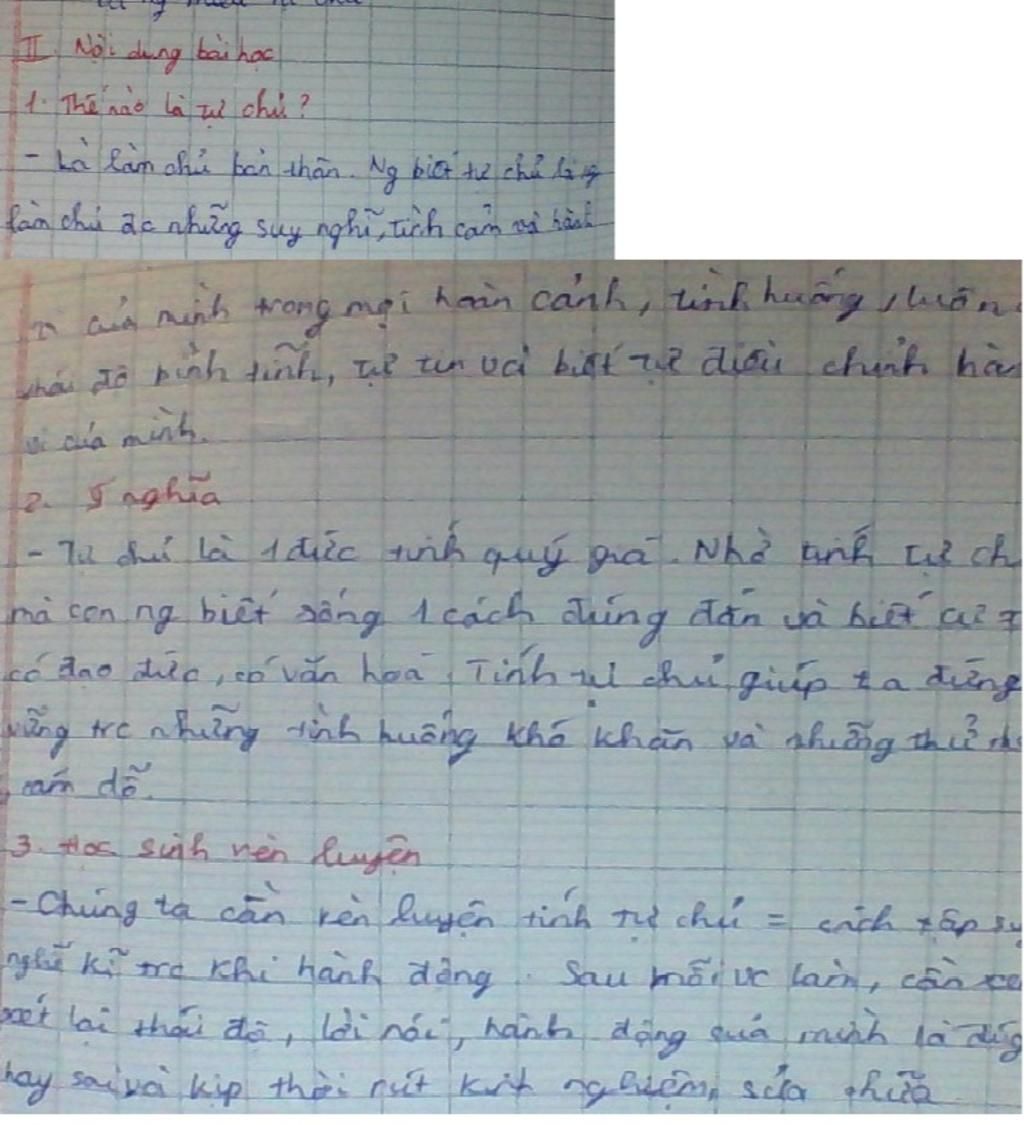 II. Nội dung bài học
1. Thế nào là tự chủ?
- Là làm chủ bản thân. Ng biết tự chủ là ng
làm chủ đc những suy nghĩ, tình cảm và hành
của mình trong mọi hoàn cảnh, tình huống, luôn
thái độ bình tĩnh, tự tin và biết tự điều chỉnh hàn
vi của mình.
2. Ý nghĩa
- Tự chủ là 1 đức tính quý giá. Nhờ tính tự ch
mà con ng biết sống 1 cách đúng đắn và biết cư
có đạo đức, có văn hoá. Tính tự chủ giúp ta đứng
vững trc những tình huống khó khăn và những thử th
cám dỗ.
3. Học sinh rèn luyện
- Chúng ta cần rèn luyện tính tự chủ = cách tập su
nghĩ kĩ trc khi hành động. Sau mỗi vc làm, cần xe
xét lại thái độ, lời nói, hành động quả mình là đúg
hay sai và kịp thời rút kinh nghiệm, sửa chữa.